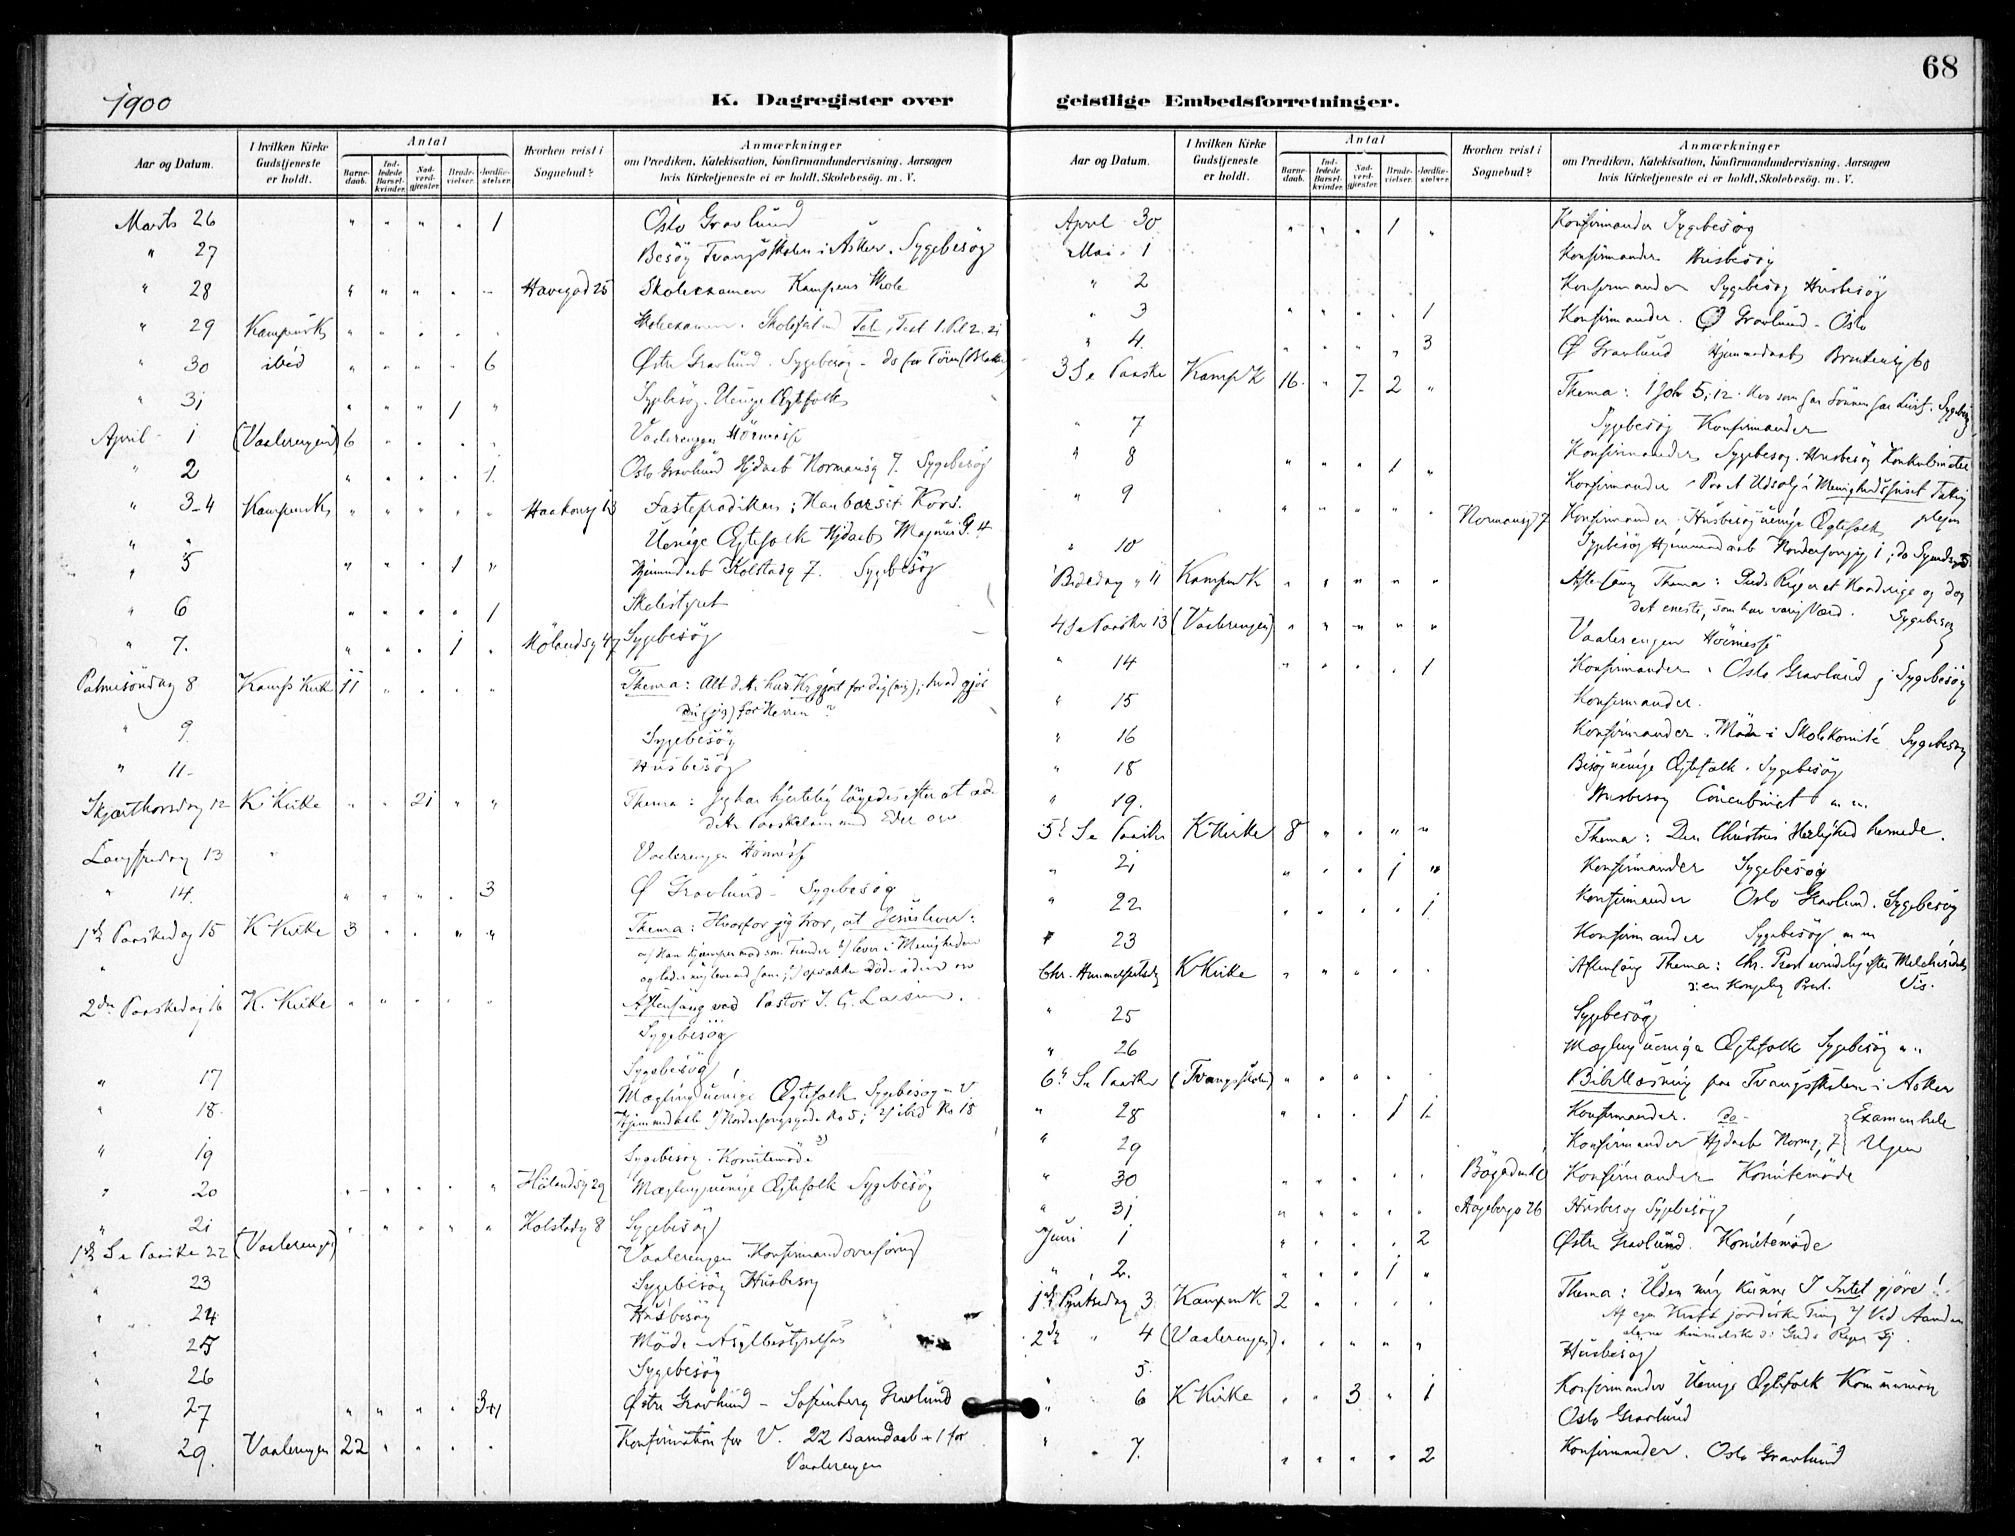 68
1900
K. Dagregister over geistlige Embedsforretninger.
Aar og Datum. I hvilken Kirke Gudstjeneste er holdt. Antal Barnedaab. Indledede Barselkvinder. Nadverdgjester. Brudevielser. Jordfæstelser. Hvorhen reist i Sognebud? Anmærkninger om Prædiken, Katekisation, Konfirmandundervisning. Aarsagen hvis Kirketjeneste ei er holdt. Skolebesög. m. V.
Marts 26 " " " . 1 Oslo Gravlund
" 27 Besög Tvangsskolen i Asker. Sygebesög
" 28 " " " . - Havegad 25 Skoleexamen Kampens Skole
" 29 Kampens K " " . . . Skoleexamen.
" 30 ibid " " " . 6 Østre Gravlund. Sygebesög
" 31 " " " 1 " Sygebesög. Uenige Ægtefolk
April 1 (Vaalerengen) 6 " . . . Vaalerengen Höimesse
" 2 " . . . 1 Oslo Gravlund Hjdaab Normansg 7. Sygebesög
" 3-4 Kampens K " " " " . Haakonsg 13 Fasteprædiken: Han bar sit Kors.
" " Uenige Ægtefolk Hjdaab Magnus G 4
" 5 " " . 1 " Hjemmedaab Kolstadg 7. Sygebesög
" 6 " " " . 1 Skolestyret
" 7. " " . 1 . Hölandsg 47 Sygebesög
Palmesöndag 8 Kamp Kirke 11 " . . . Thema: Alt dette har Kr gjort for dig (mig); hvad gjör
du (jeg) for Herren?
" 9 Sygebesög
" 11 Husbesög
Skjærthorsdag 12 K Kirke " " 21 " " Thema: Jeg har hjertelig længedes efter at æde
dette Paaskelam med Eder osv
Langfredag 13 " Vaalerengen Höimesse
" 14. " " " . 3 Ø Gravlund - Sygebesög
1ste Paaskedag 15 K Kirke 3 . . " " Thema: Hvorfor jeg tror, at Jesus lever:
2den Paaskedag 16 K. Kirke " " " . . Aftensang ved Pastor J. G. Larsen.
Sygebesög
" 17 Sygebesög
" 18. Mægling uenige Ægtefolk Sygebesög
" 19 Sygebesög. Komitemöde
" 20 . . . . " Hölandsg 29 Mægling uenige Ægtefolk Sygebesög
" 21 . . " " " Kolstadg 8 Sygebesög
1ste S e Paaske 22 (Vaalerengen) Vaalerengen Konfirmandoverhöring
" 23 Sygebesög Husbesög
" 24 Husbesög
" 25 Möde Asylbestyrelsen
" 26 Sygebesög
" 27 " " . . 3+1 Østre Gravlund - Sofienberg Gravlund
" 29. Vaalerengen 22 . . . . Konfirmation for V. 22 Barnedaab + 1 for
Vaalerengen
Aar og Datum. I hvilken Kirke Gudstjeneste er holdt. Antal Barnedaab. Indledede Barselkvinder. Nadverdgjester. Brudevielser. Jordfæstelser. Hvorhen reist i Sognebud? Anmærkninger om Prædiken, Katekisation, Konfirmandundervisning. Aarsagen hvis Kirketjeneste ei er holdt. Skolebesög. m. V.
April 30 . . . 1 " Konfirmander Sygebesög
Mai 1 Konfirmander Husbesög
" 2 Konfirmander Sygebesög Husbesög
" 3 " . " . 1 Konfirmander. Ø Gravlund - Oslo
" 4. . . . . 3 Ø Gravlund Hjemmedaab
3 S e Paaske Kamp K 16. " 7 2 " Thema: 1 Joh 5, 12. Hvo som har Sönnen har Livet. Sygebesög
" 7 Sygebesög Konfirmander
" 8 " " . 1 " Konfirmander Sygebesög. Husbesög
" 9 Konfirmander Menighedshuset
" " " . . Normansg 7 Konfirmander. Husbesög uenige Ægtefolk
" 10 Sygebesög Hjemmedaab
Bededag " 11 Kampens K " " " " " Aftensang Thema: Guds Rige er et Kaarrige og dog
det eneste, som har varig Værd. Sygebesög
4 S e Paaske 13 (Vaalerengen) " " " " " Vaalerengen Höimesse
" 14 " . . . 1 Konfirmander. Oslo Gravlund; Sygebesög
" 15 Konfirmander.
" 16 Konfirmander. Möde i Skolekomité Sygebesög
" 18 Besög uenige Ægtefolk. Sygebesög
" 19. Husbesög
5te S e Paaske K Kirke 8 " . " " Thema: Den Christnes Herlighed hernede.
" 21 " . . 1 " Konfirmander Sygebesög
" 22 . . . . 1 Konfirmander Oslo Gravlund. Sygebesög
" 23 Konfirmander Sygebesög m m
Chr. Himmelfartsdag K Kirke . " " . . Aftensang Thema: Chr. Prest evindelig efter Melchisedeks
ɔ: en kongelig Prest. Vis.
" 25 Sygebesög
" 26 Mægling uenige Ægtefolk Sygebesög " "
6te S e Paaske (Tvangsskolen) " . . . . Bibellæsning paa Tvangsskolen i Asker
" 28 " . . 1 1 Konfirmander. do Examen hele
" 29 Konfirmander Hjdaab Normsg. 7 Ugen
" 30 " . . . . Konfirmander Komitemöde
" 31 " " . . . Aagebergv 26 Husbesög Sygebesög
Juni 1 " . . . 2 Østre Gravlund. Komitemöde
" 2. " . . 1 "
1ste Pintsedag 3 Kampens K 2 . . . . Thema: Uden mig kunne I Intet gjöre!
2den " 4 (Vaalerengen) . . " " "
" 5. Husbesög
" 6 K Kirke . . 3 . 1 Konfirmander Uenige Ægtefolk Kommunion
Oslo Gravlund
" 7. . . . . 2 Konfirmander. Oslo Gravlund